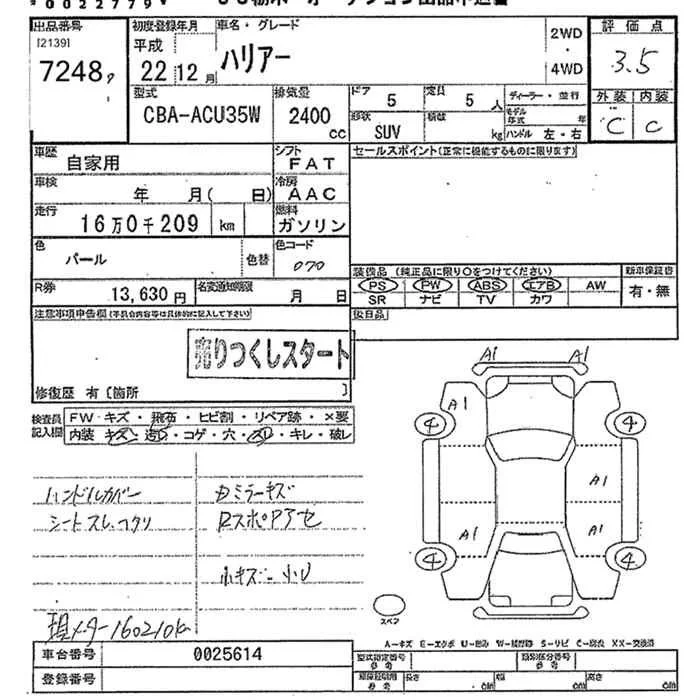 00022779
出品番号 初度登録年月 車名・グレード 2WD・4WD 評価点
[2139] 平成 ハリアー 3.5
7248 22年12月
型式 排気量 ドア 定員 ディーラー・並行 外装 内装
CBA-ACU35W 2400cc 5 5人 モデル年式 年 C C
形状 積載
SUV kg ハンドル 左・右
車歴 自家用 シフト FAT セールスポイント(正常に機能するものに限ります)
車検 年 月( 日) 冷房 AAC
走行 16万0千209 km 燃料 ガソリン
色 パール 色替 色コード 070
装備品 (純正品に限り○をつけてください) 新車保証書
R券 13,630円 名変通知期限 月 日 PS PW ABS エアB AW 有・無
SR ナビ TV カワ
注意事項申告欄(不具合内容等は具体的に記入して下さい) 後日品
売りつくしスタート
修復歴 有〔箇所 〕
検査員記入欄 FW キズ・飛石・ヒビ割・リペア跡・×要
内装 キズ・汚レ・コゲ・穴・スレ・キレ・破レ
A1 A1
A1
4 4
A1
A1 A1
4 4
ハンドルカバー
シートスレ、コクリ
ミラーキズ
小キズ 小U
現メーター160210k
スペア
A-キズ E-エクボ U-凹み W-補修跡 S-サビ C-腐食 XX-交換済
車台番号 0025614 型式指定番号 参考 類別区分番号 参考
登録番号 長さ cm 幅 cm 高さ cm